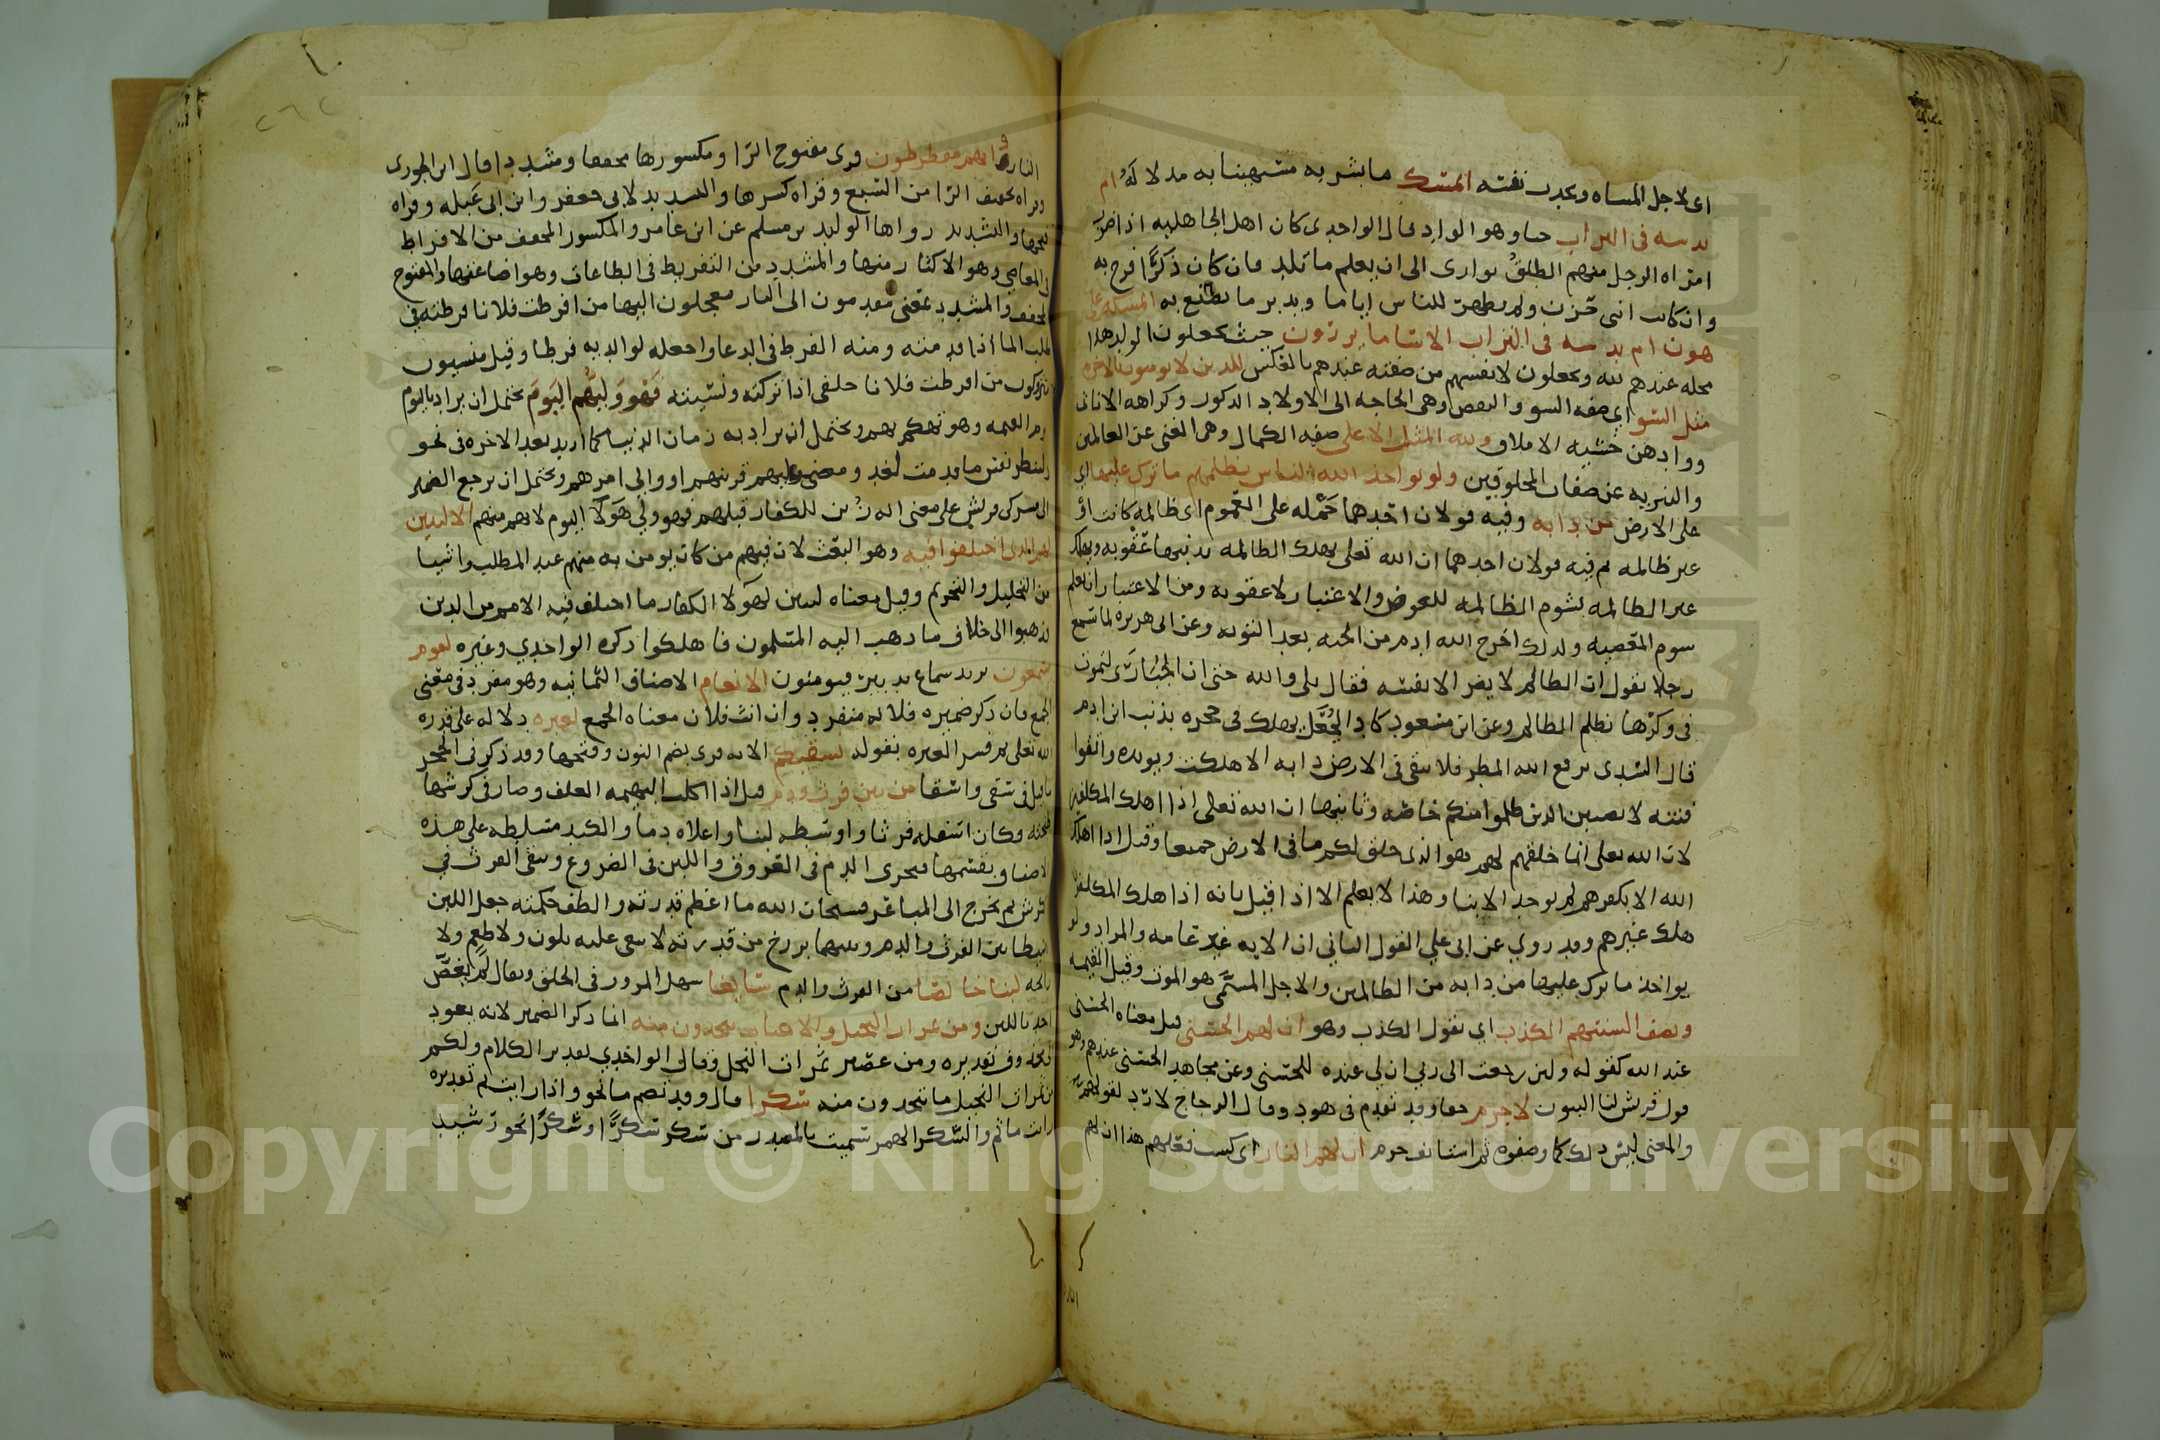 اى لاجل المساه ويحدث نفسه ايمسكه ما بشر به مستهينا به مدلا له ام
يدسه فى التراب حيا وهو الواد قال الواحدى كان اهل الجاهليه اذا ضرب
امراه الرجل منهم الطلق توارى الى ان يعلم ما تلد فان كان ذكرًا فرح به
وان كانت انثى حزن ولم يظهر للناس اياما ويدبر ما يصنع به ايمسكه على
هون ام يدسه فى التراب الا ساما يحكمون حيث يجعلون الولد هذا
محله عندهم لله ويجعلون لانفسهم من صفته عندهم بالعكس للذين لا يومنون بالاخره
مثل السو اى صفه السو والنقص وهى الحاجه الى الاولاد الذكور وكراهه الاناث
ووادهن خشيه الاملاق ولله المثل الاعلى صفه الكمال وهى الغنى عن العالمين
والتنزيه عن صفات المخلوقين ولو يواخذ الله الناس بظلمهم ما ترك عليها اى
على الارض من دابه وفيه قولان احدهما حمله على العموم اى ظالمه كانت او
غير ظالمه ثم فيه قولان احدهما ان الله تعلى يهلك الظالمه بذنبها عقوبه ويهلك
غير الظالمه لشوم الظالمه للعوض والاعتبار لا عقوبه ومن الاعتبار ان يعلم
شوم المعصيه ولذلك اخرج الله ادم من الجنه بعد التوبه وعن ابى هريره لما سمع
رجلا يقول ان الظالم لا يضر الا نفسه فقال بلى والله حتى ان الحبارى لتموت
فى وكرها بظلم الظالم وعن ابن مسعود كاد الجعل يهلك فى جحره بذنب ابن ادم
قال السدى يرفع الله المطر فلا يبقى فى الارض دابه الا هلكت ويويده واتقوا
فتنه لا تصيبن الذين ظلموا منكم خاصه وثانيها ان الله تعلى اذا اهلك المكلفين
لان الله تعلى انما خلقهم لهم هو الذى خلق لكم ما فى الارض جميعا وقيل اذا اهلك
الله الابا بكفرهم لم يوجد الابنا وهذا لا يعلم الا اذا قيل بانه اذا هلك المكلف
هلك غيرهم وقد روي عن ابى علي القول الثانى ان الايه غير عامه والمراد ولو
يواخذ ما ترك عليها من دابه من الظالمين والاجل المسمى هو الموت وقيل القيمه
وتصف السنتهم الكذب اى تقول الكذب وهو ان لهم الحسنى قيل معناه الحسنى
عند الله كقوله ولين رجعت الى ربى ان لى عنده للحسنى وعن مجاهد الحسنى عندهم وهو
قول قريش لنا البنون لا جرم حقا وقد تقدم فى هود وقال الزجاج لا رد لقولهم
والمعنى ليس ذلك كما وصفوه ثم استانف جرم ان لهم النار اى كسب فعلهم هذا ان لهم
النار وانهم مفرطون قرى مفتوح الرا ومكسورها مخففا ومشددا قال ابن الجوزى
قراه تخفيف الرا من السبع وقراه كسرها والتشديد لابى جعفر وابن ابى عبله وقراه
فتحها والتشديد رواها الوليد بن مسلم عن ابن عامر والمكسور المخفف من الافراط
فى المعاصى وهو الاكثار منها والمشدد من التفريط فى الطاعات وهو اضاعتها والمفتوح
المخفف والمشدد بمعنى مقدمون الى النار معجلون اليها من افرطت فلانا فرطته فى
طلب الما اذا قدمته ومنه الفرط فى الدعا واجعله لوالديه فرطا وقيل منسيون
متروكون من افرطت فلانا خلفى اذا تركته ونسيته فهو وليهم اليوم يحتمل ان يراد باليوم
يوم القيمه وهو تهكم بهم ويحتمل ان يراد به زمان الدنيا كما اريد بغد الاخره فى نحو
ولتنظر نفس ما قدمت لغد ومعنى وليهم قرينهم او والى امرهم ويحتمل ان يرجع الضمير
الى مشركى قريش على معنى انه زين للكفار قبلهم فهو ولي هولا اليوم لانهم منهم الا لتبين
لهم الذى اختلفوا فيه وهو البعث لان فيهم من كان يومن به منهم عبد المطلب واشيا
من التحليل والتحريم وقيل معناه لتبين لهولا الكفار ما اختلف فيه الامم من الدين
فذهبوا الى خلاف ما ذهب اليه المسلمون فاهلكوا ذكره الواحدي وغيره لقوم
يسمعون يريد سماع تدبر فيومنون الانعام الاصناف الثمانيه وهو مفرد فى معنى
الجمع فان ذكر ضميره فلانه منفرد وان انث فلان معناه الجمع لعبره دلاله على قدره
الله تعلى ثم فسر العبره بقوله نسقيكم الايه قرى بضم النون وفتحها وقد ذكر فى الحجر
ما قيل فى سقى واسقا من بين فرث ودم قيل اذا اكلت البهيمه العلف وصار فى كرشها
طبخته وكان اسفله فرثا واوسطه لبنا واعلاه دما والكبد مسلطه على هذه
الاصناف تقسمها فيجرى الدم فى العروق واللبن فى الضروع ويبقى الفرث فى
الكرش ثم يخرج الى المباعر فسبحان الله ما اعظم قدرته والطف حكمته جعل اللبن
وسيطا بين الفرث والدم وبينهما برزخ من قدرته لا يبغى عليه بلون ولا طعم ولا
رائحه لبنا خالصا من الفرث والدم سائغا سهل المرور فى الحلق ويقال لم يغص
احد باللبن ومن ثمرات النخيل والاعناب تتخذون منه انما ذكر الضمير لانه يعود
تقديره ومن عصير ثمرات النخل وقال الواحدي تقدير الكلام ولكم
من ثمرات النخيل ما تتخذون منه سكرا قال وقد تضمر ما نحو واذا رايت ثم تقديره
رايت ما ثم والسكر الخمر سميت بالمصدر من سكر سكرًا وسكرًا نحو رشيد
Copyright © King Saud University